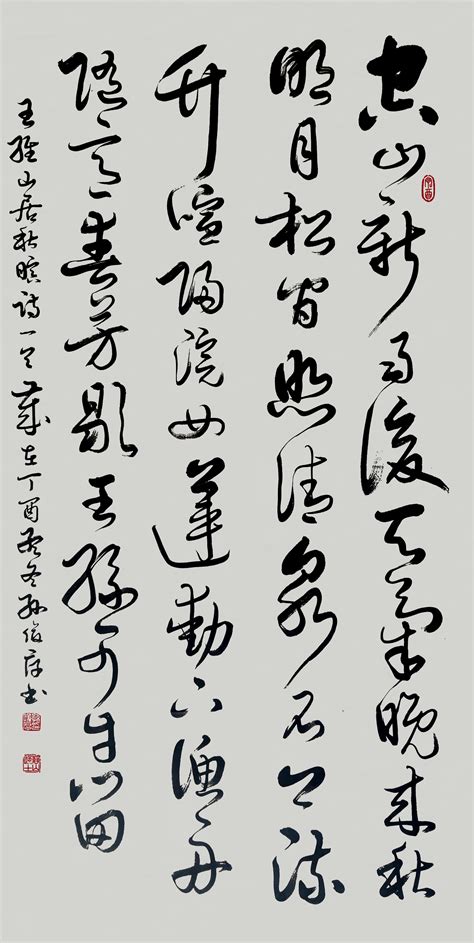 空山新雨後天氣晚來秋
明月松間照清泉石上流
竹喧歸浣女蓮動下漁舟
隨意春芳歇王孫可自留
王維山居秋暝詩一首歲在丁酉冬孫俊書